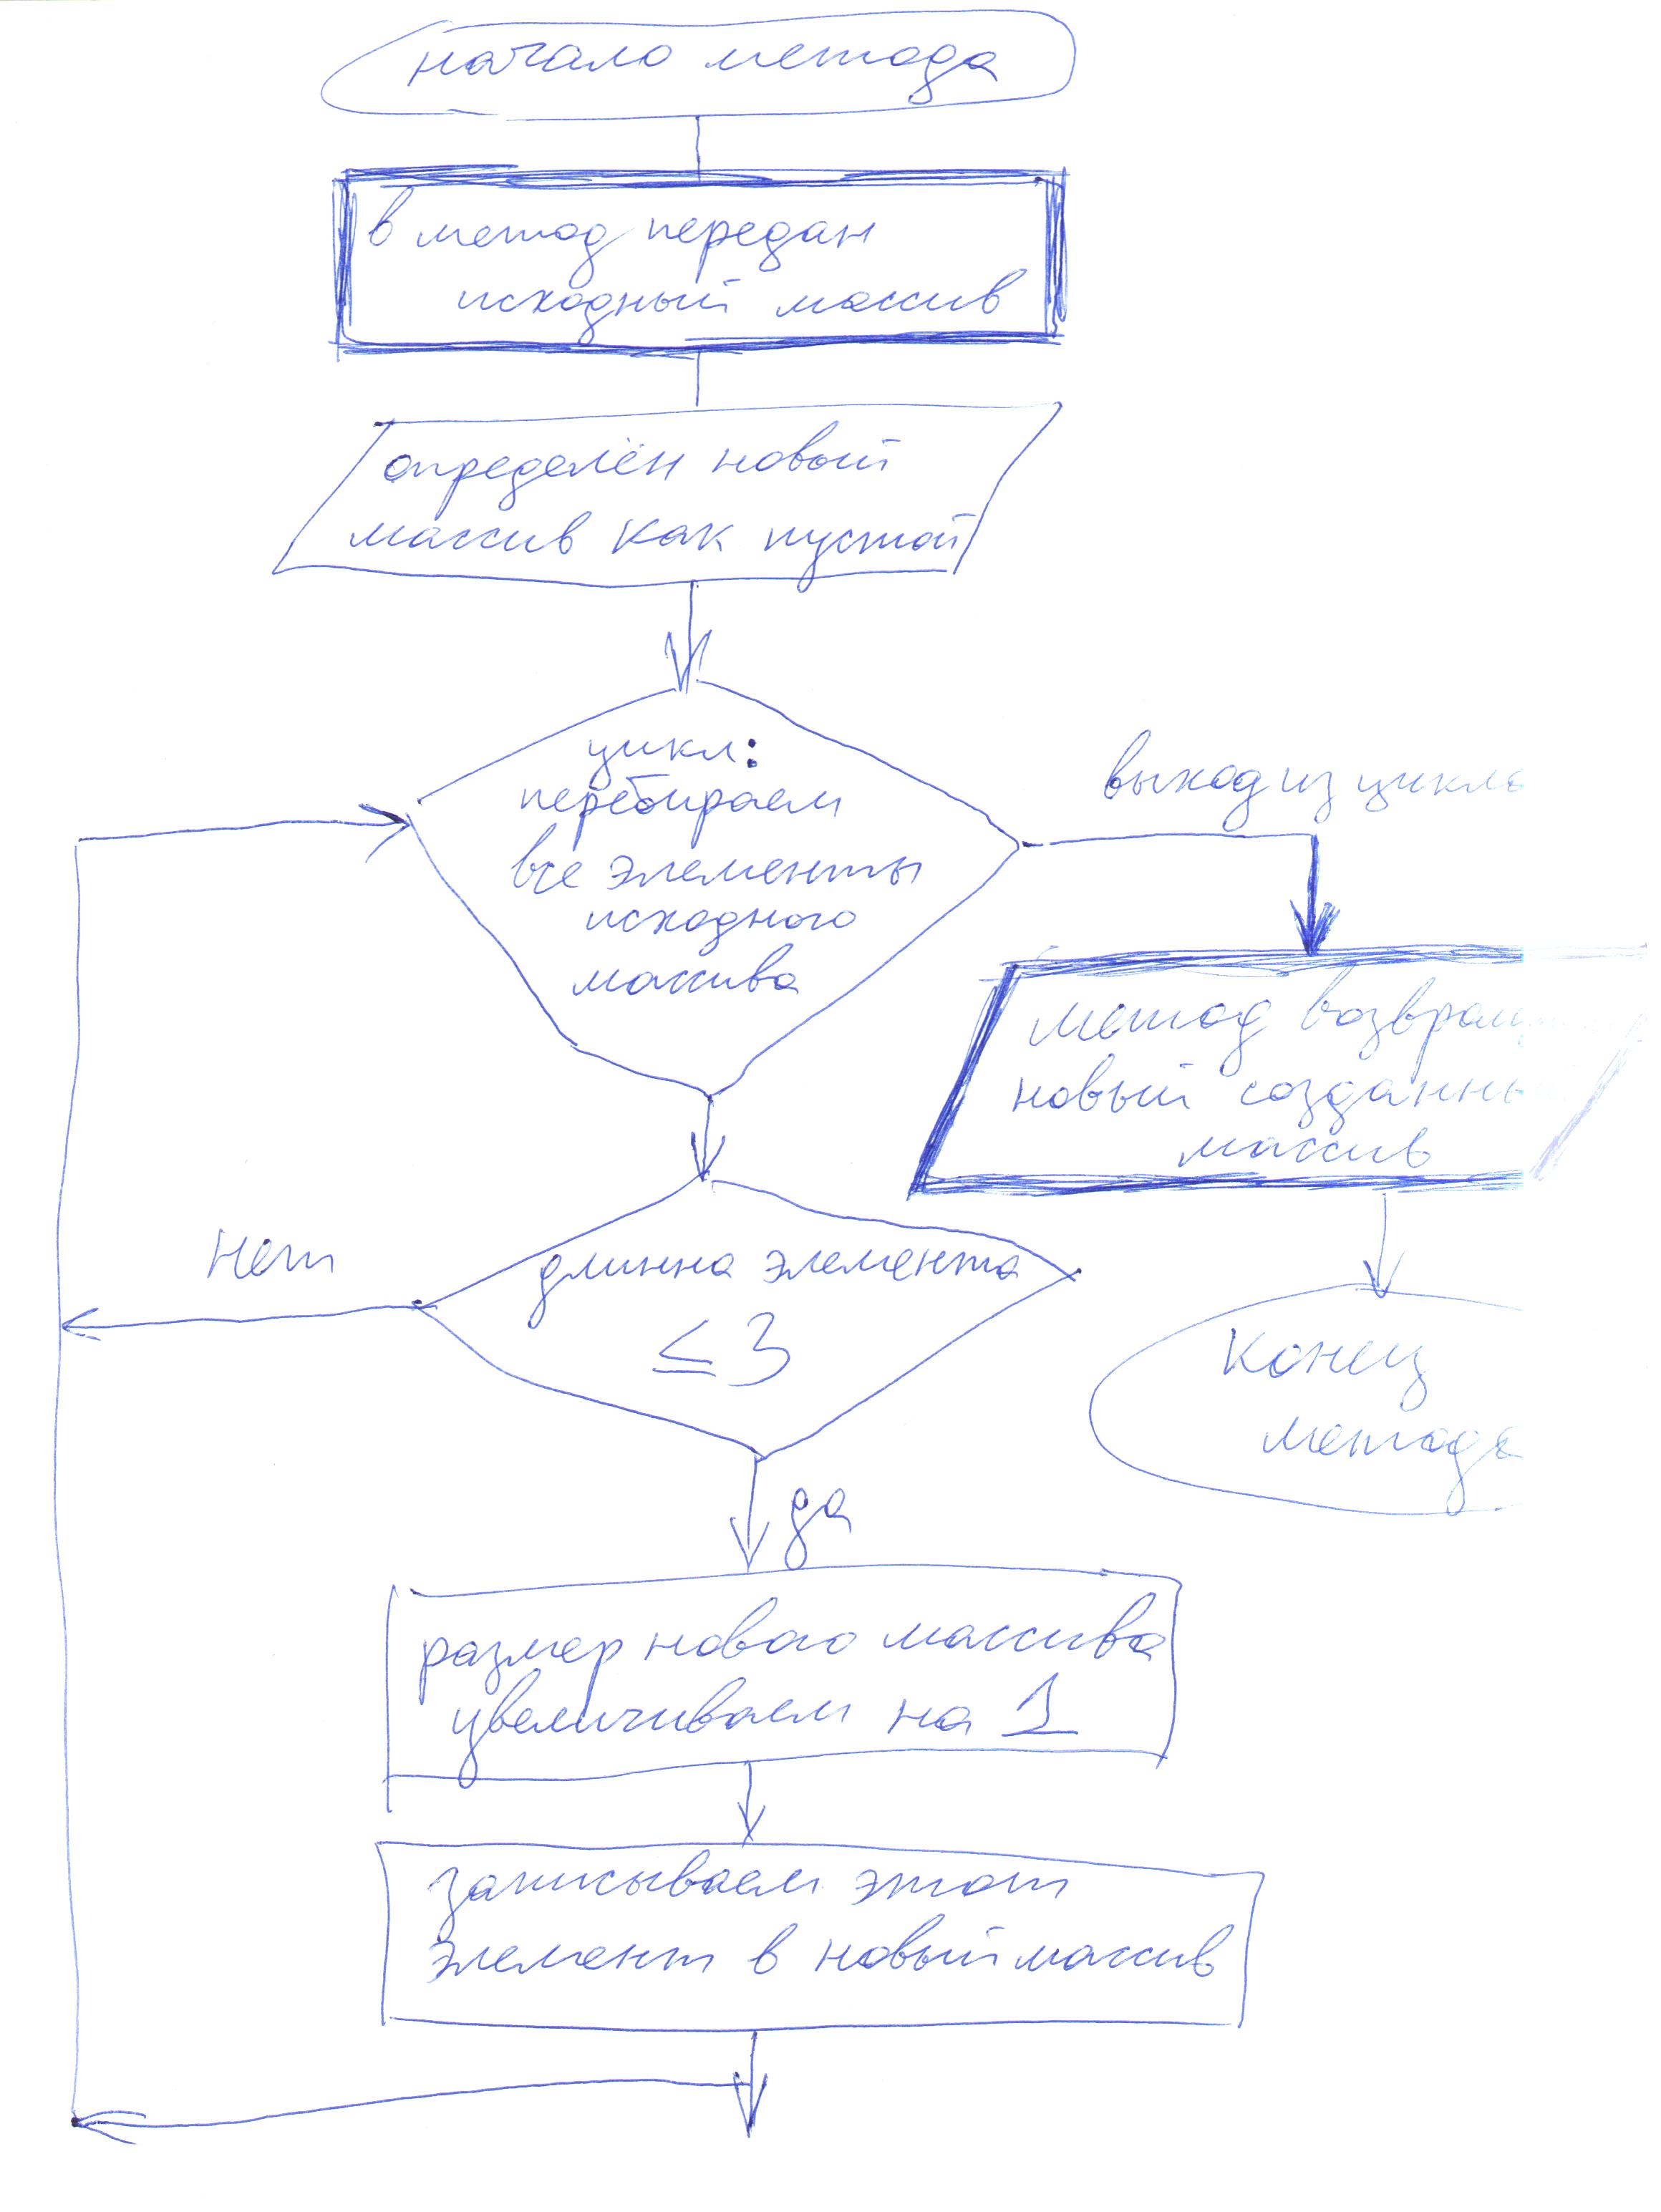 начало метода
в метод передан
исходный массив
определён новый
массив как пустой
цикл:
перебираем
все элементы
исходного
массива
выход из цикла
метод возвращ
новый созданны
массив
длинна элемента
≤ 3
нет
конец
метода
да
размер нового массива
увеличиваем на 1
записываем этот
элемент в новый массив